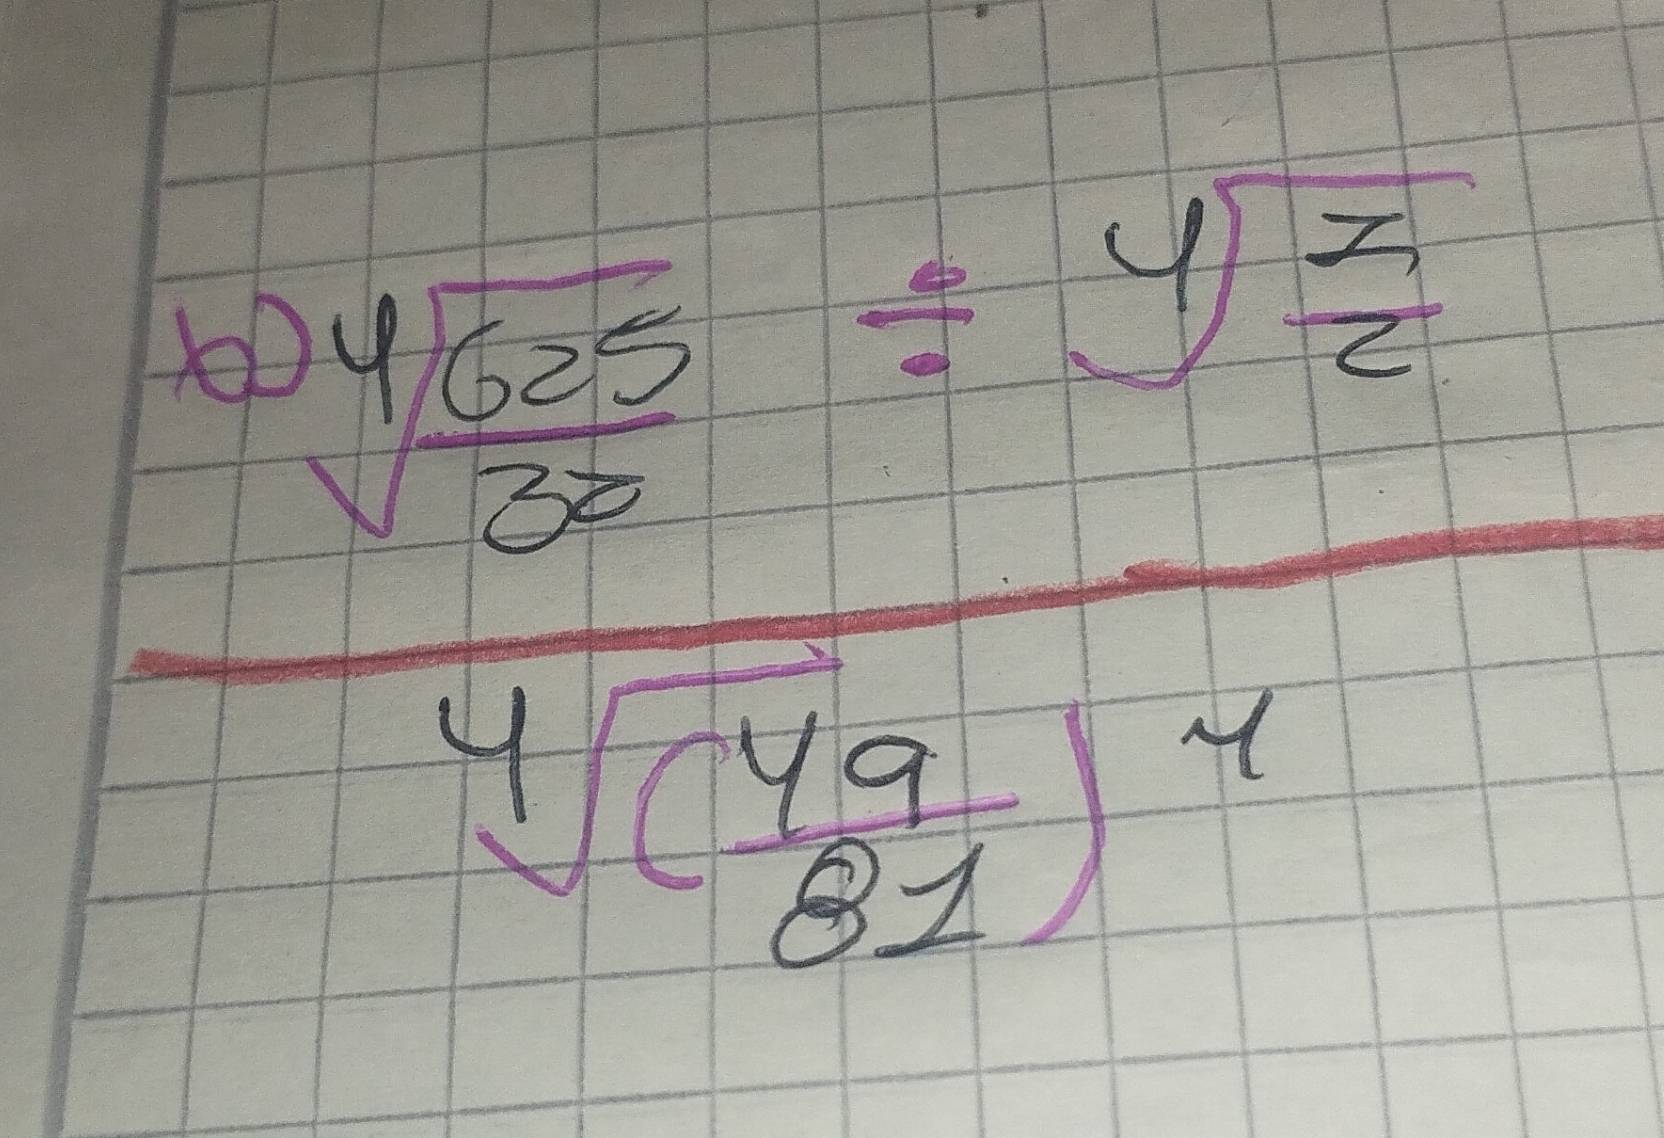 b) ⁴√(625/32) ÷ ⁴√(1/2)
⁴√(49/81)⁴